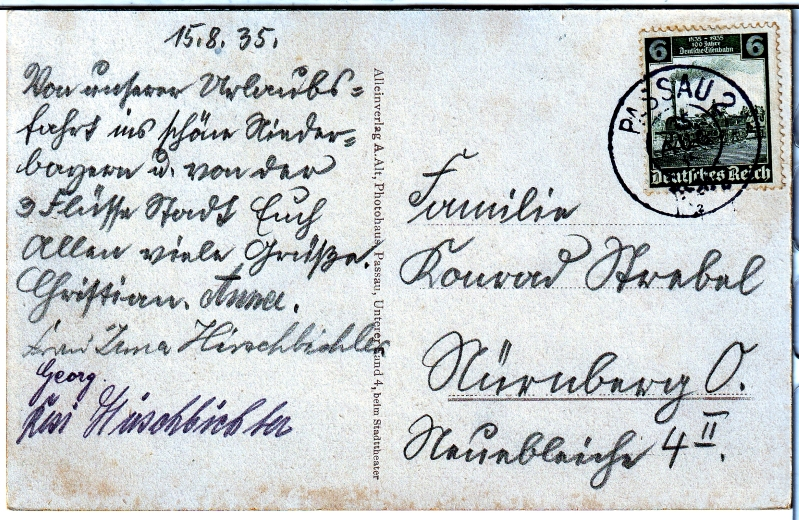 15.8.35.
Von unserer Urlaubs=
fahrt ins schöne Nieder=
bayern u. von der
3 Flüsse Stadt Euch
Allen viele Grüße.
Christian. Anna.
Frau Hirschbichler
Georg.
Resi Hirschbichler
Alleinverlag A. Alt, Photohaus, Passau, Unterer Sand 4, beim Stadttheater
6 1835-1935 6
100 Jahre
Deutsche Eisenbahn
Deutsches Reich
PASSAU 2
Familie
Konrad Strebel
Nürnberg O.
Neuebleiche 4 II.